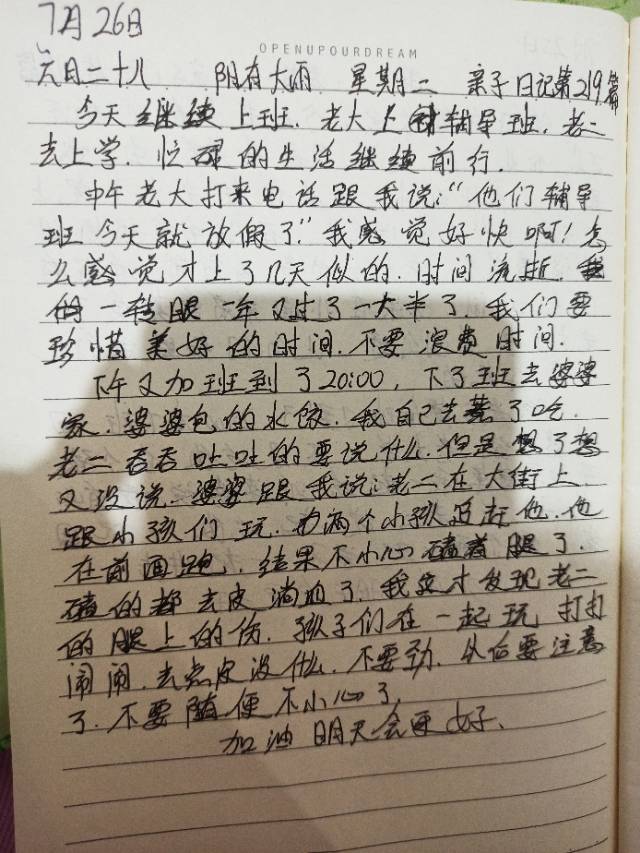 7月26日
OPENUPOURDREAM
六月二十八 阴有大雨 星期二 亲子日记第219篇
今天继续上班.老大上辅导班.老二
去上学.忙碌的生活继续前行.
中午老大打来电话跟我说:“他们辅导
班今天就放假了.”我感觉好快啊!怎
么感觉才上了几天似的.时间流逝.
的一转眼一年又过了一大半了.我们要
珍惜美好的时间.不要浪费时间.
下午又加班到了20:00,下了班去婆婆
家.婆婆包的水饺.我自己去煮了吃.
老二吞吞吐吐的要说什么.但是想了想
又没说.婆婆跟我说:老二在大街上
跟小孩们玩.由两个小孩追赶他.他
在前面跑.结果不小心磕着腿了.
磕的都去皮淌血了.我这才发现老二
的腿上的伤.孩子们在一起玩打打
闹闹.去点皮没什么.不要劲.以后要注意
了.不要随便不小心了.
加油明天会更好.